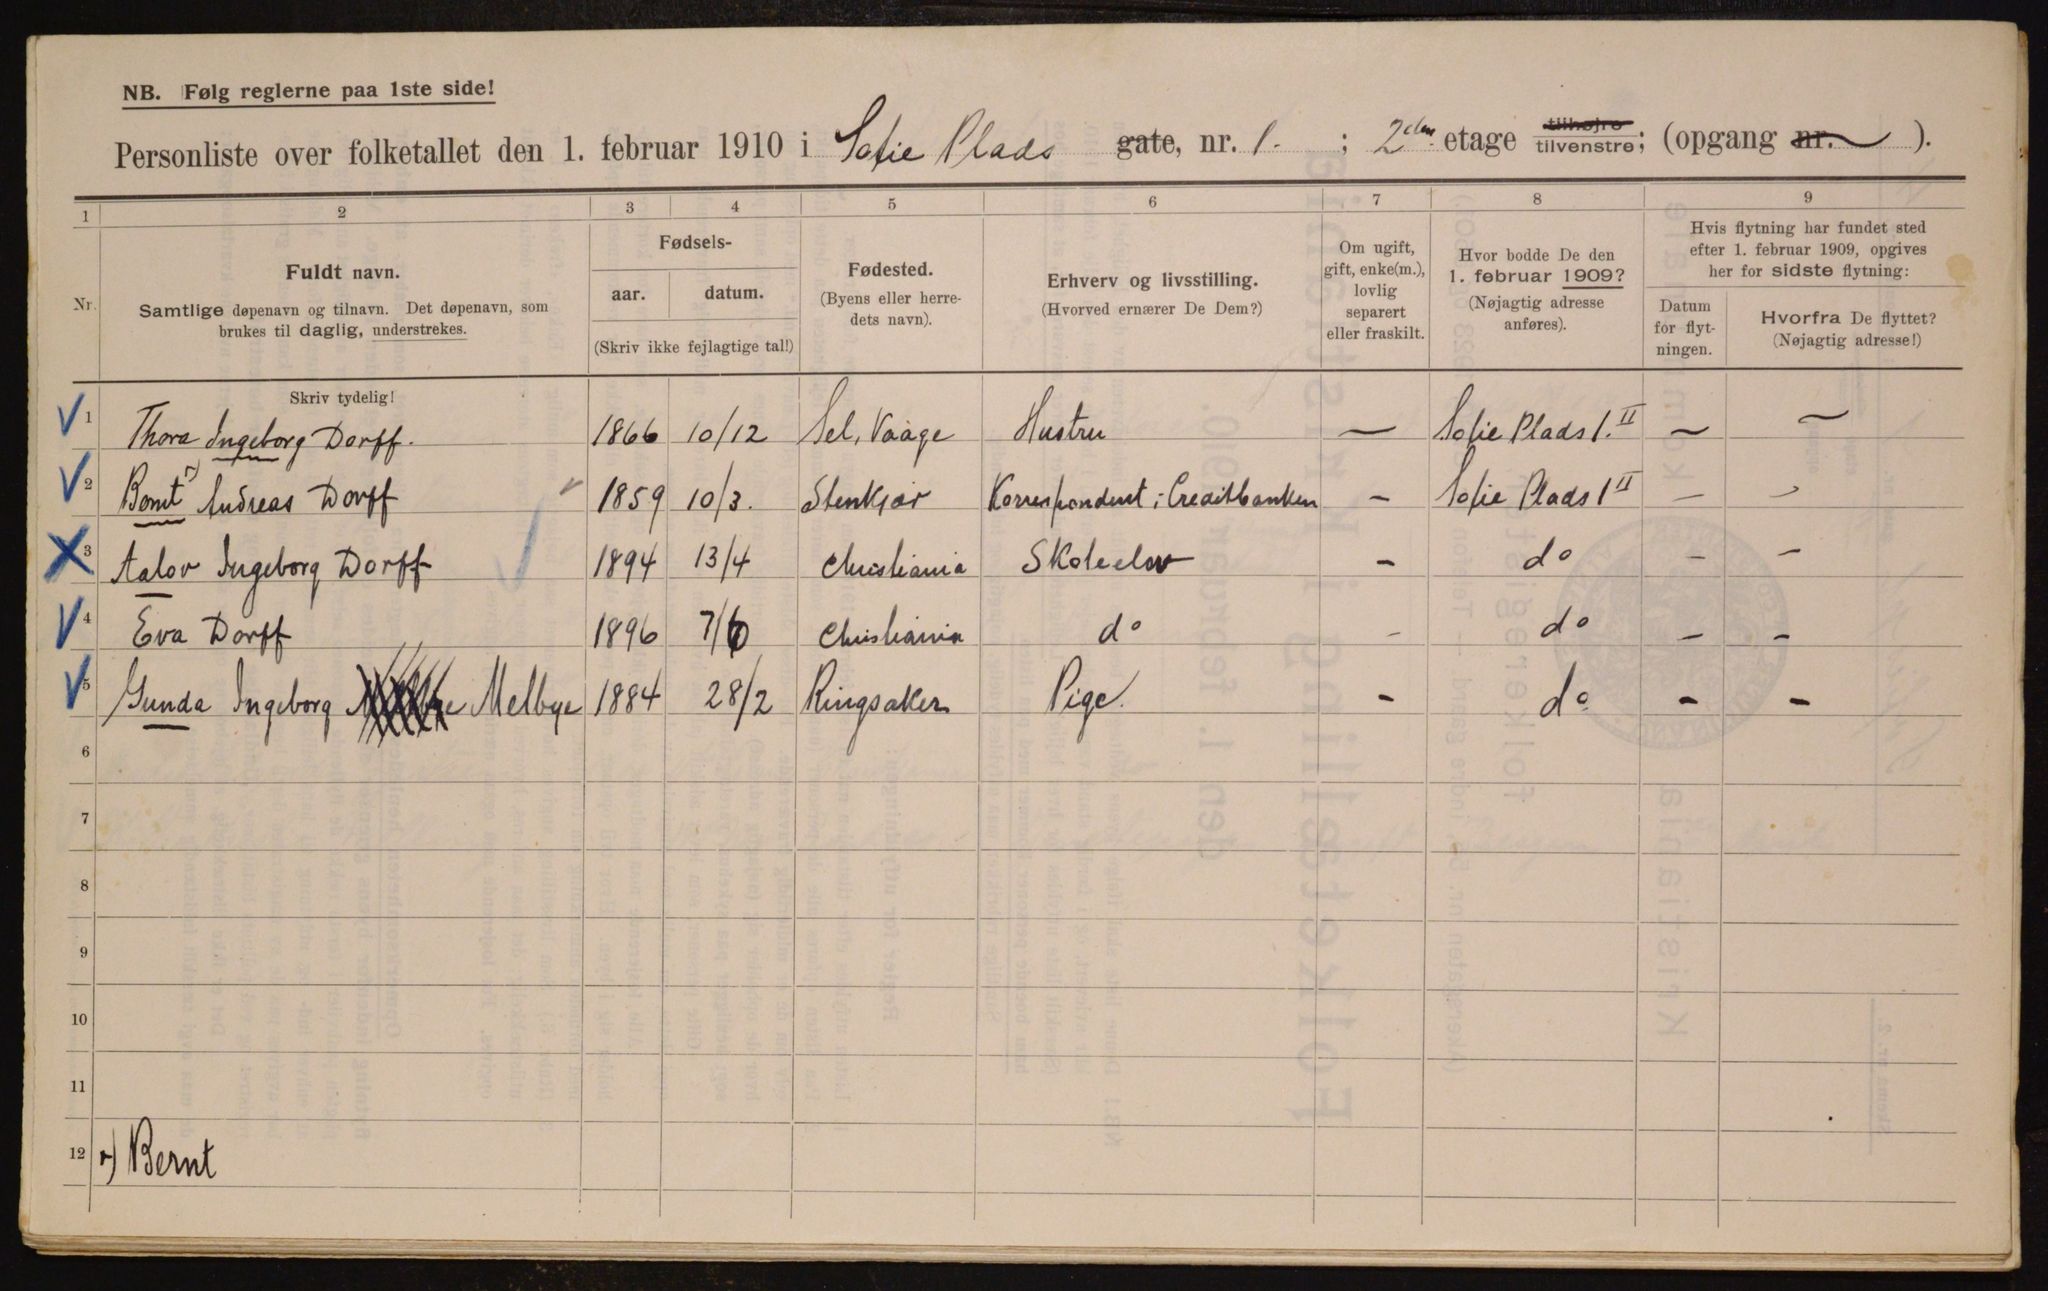 NB. Følg reglerne paa 1ste side!
Personliste over folketallet den 1. februar 1910 i Sofie Plads gate, nr. 1. ; 2den etage tilhøjre tilvenstre; (opgang nr. ).
1 2 3 4 5 6 7 8 9
Nr. Fuldt navn. Samtlige døpenavn og tilnavn. Det døpenavn, som
brukes til daglig, understrekes.
Fødsels-
aar. datum.
(Skriv ikke fejlagtige tal!)
Fødested.
(Byens eller herre-
dets navn).
Erhverv og livsstilling.
(Hvorved ernærer De Dem?)
Om ugift,
gift, enke(m.),
lovlig
separert
eller fraskilt.
Hvor bodde De den
1. februar 1909?
(Nøjagtig adresse
anføres).
Hvis flytning har fundet sted
efter 1. februar 1909, opgives
her for sidste flytning:
Datum
for flyt-
ningen.
Hvorfra De flyttet?
(Nøjagtig adresse!)
Skriv tydelig!
1 Thora Ingeborg Dorff. 1866 10/12 Sel, Vaage Hustru — Sofie Plads 1. II — —
2 Bernt Andreas Dorff 1859 10/3. Stenkjær Korrespondent i Creditbanken - Sofie Plads 1 II - -
3 Aalov Ingeborg Dorff 1894 13/4 Christiania Skoleelev - do - -
4 Eva Dorff 1896 7/6 Christiania do - do - -
5 Gunda Ingeborg Melbye 1884 28/2 Ringsaker Pige. - do - -
6
7
8
9
10
11
12 Bernt